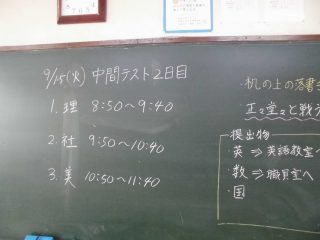 9/15(火) 中間テスト2日目
1. 理 8:50〜9:40
2. 社 9:50〜10:40
3. 美 10:50〜11:40
・机の上の落書き
・正々堂々と戦う
提出物
・英 ⇒ 英語教室へ
・数 ⇒ 職員室へ
・国